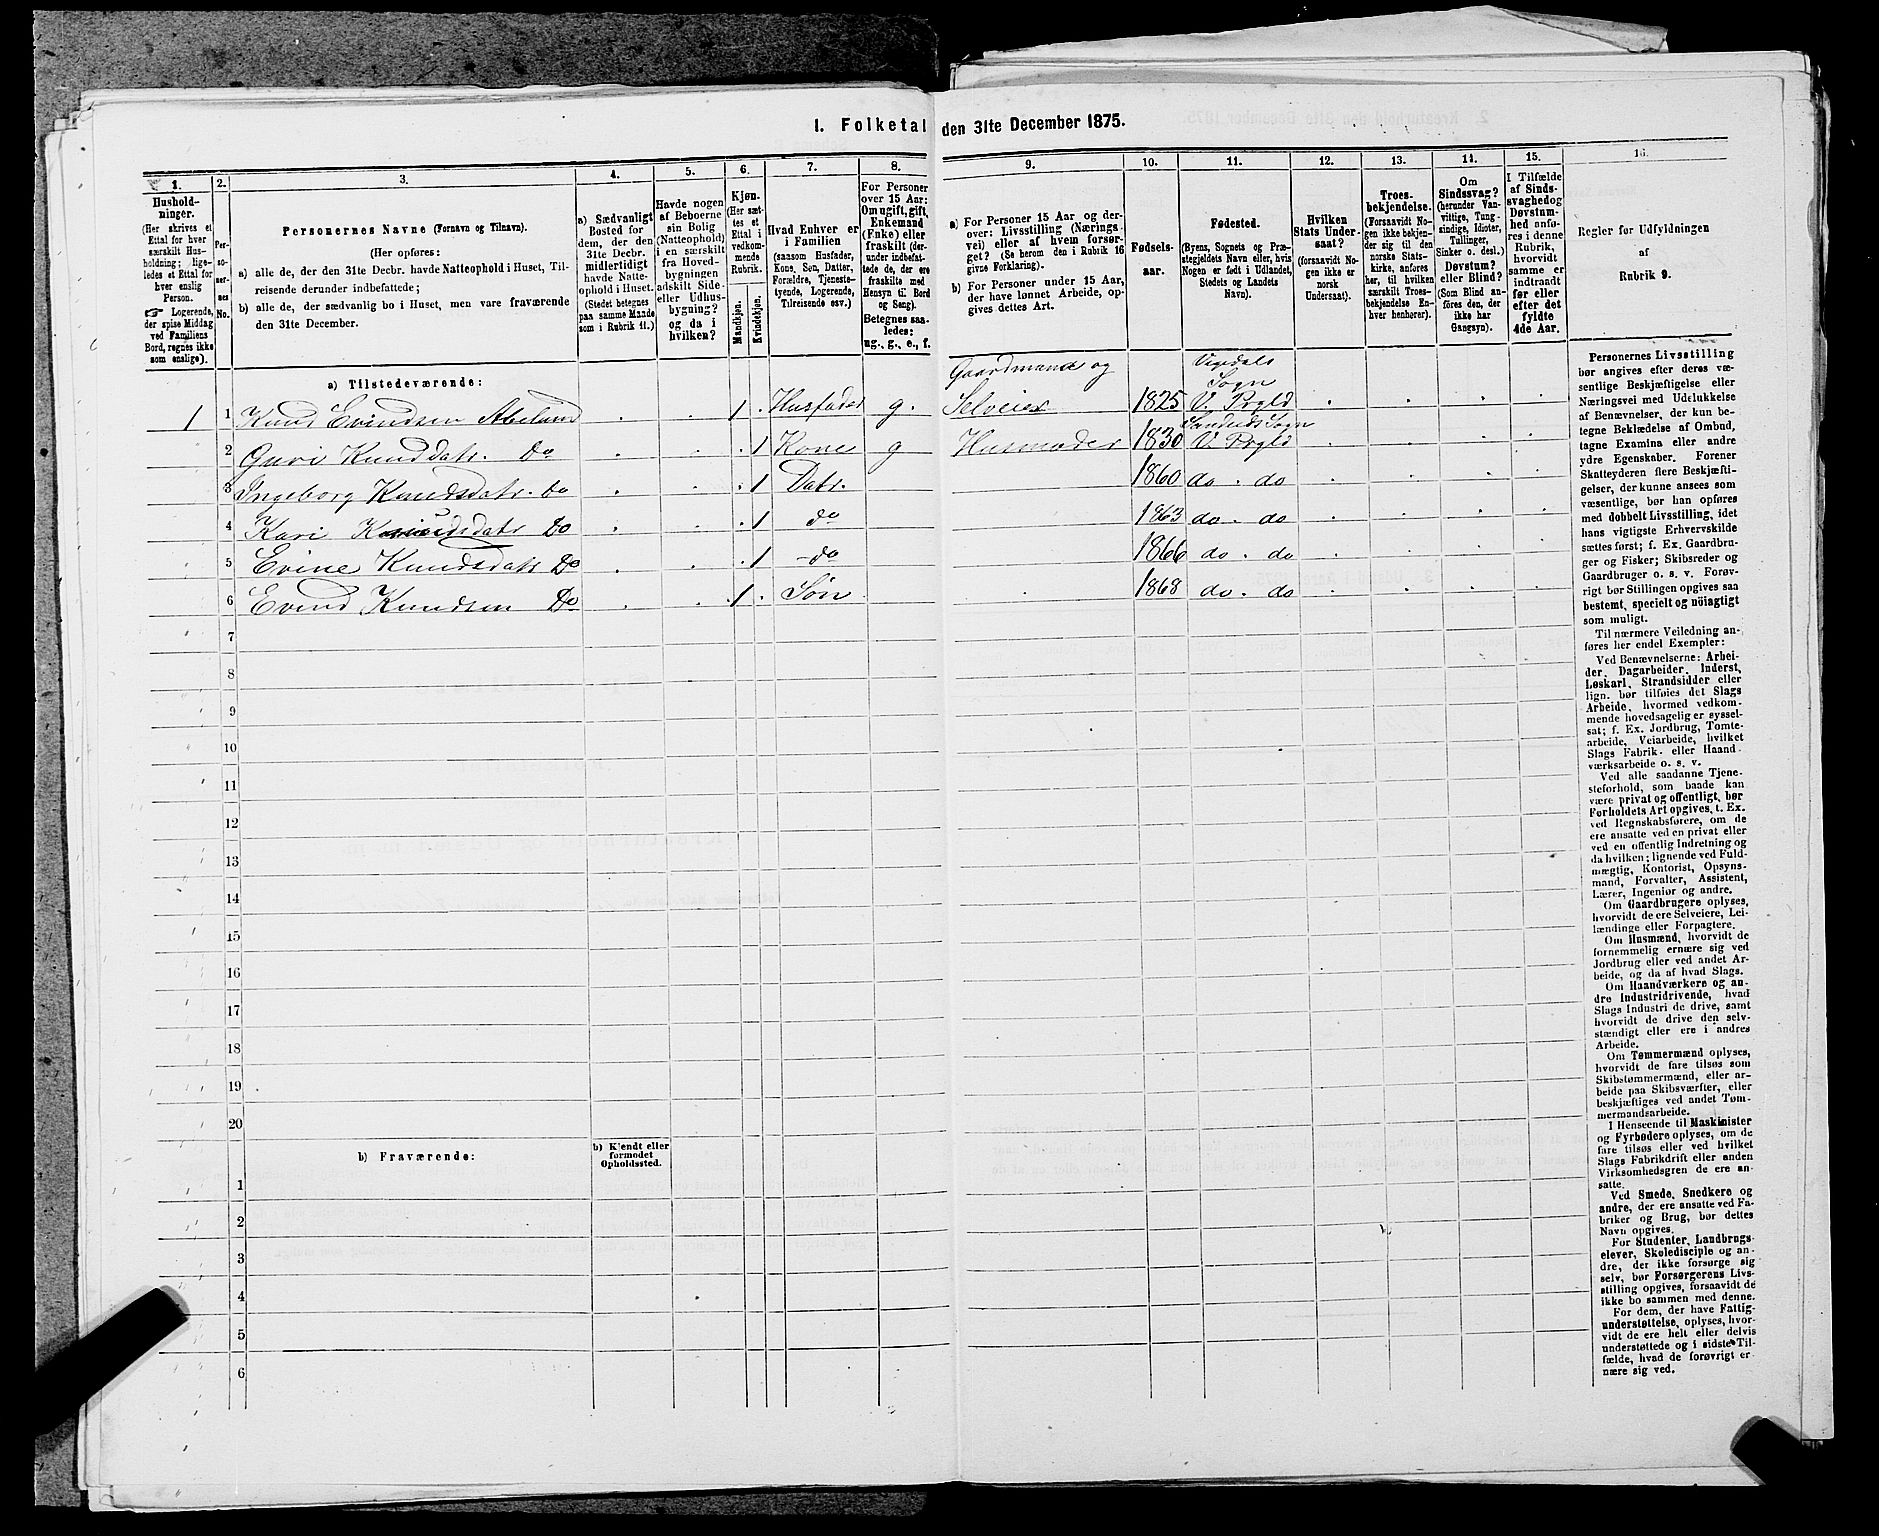 I. Folketal den 31te December 1875.
1. 2. 3. 4. 5. 6. 7. 8. 9. 10. 11. 12. 13. 14. 15. 16.
Hushold-
ninger.
(Her skrives et
Ettal for hver
særskilt Hus-
holdning; lige-
ledes et Ettal for
hver enslig
Person.
☞ Logerende,
der spise Middag
ved Familiens
Bord, regnes ikke
som enslige).
Per-
so-
ner-
nes
No.
Personernes Navne (Fornavn og Tilnavn).
(Her opføres:
a) alle de, der den 31te Decbr. havde Natteophold i Huset, Til-
reisende derunder indbefattede;
b) alle de, der sædvanlig bo i Huset, men vare fraværende
den 31te December.
a) Sædvanligt
Bosted for
dem, der den
31te Decbr.
midlertidigt
havde Natte-
ophold i Huset.
(Stedet betegnes
paa samme Maade
som i Rubrik 11.)
Havde nogen
af Beboerne
sin Bolig
(Natteophold)
i en særskilt
fra Hoved-
bygningen
adskilt Side-
eller Udhus-
bygning?
og da i
hvilken?
Kjøn.
(Her sæt-
tes et
Ettal i
vedkom-
mende
Rubrik.
Mandkjøn.
Kvindekjøn.
Hvad Enhver er
i Familien
(saasom Husfader,
Kone, Søn, Datter,
Forældre, Tjeneste-
tyende, Logerende,
Tilreisende osv.)
For Personer
over 15 Aar:
Om ugift, gift,
Enkemand
(Enke) eller
fraskilt (der-
under indbefat-
tede de, der ere
fraskilte med
Hensyn til Bord
og Seng).
Betegnes saa-
ledes:
ug., g., e., f.
a) For Personer 15 Aar og der-
over: Livsstilling (Nærings-
vei) eller af hvem forsør-
get? (Se herom den i Rubrik 16
givne Forklaring).
b) For Personer under 15 Aar,
der have lønnet Arbeide, op-
gives dettes Art.
Fødsels-
aar.
Fødested.
(Byens, Sognets og Præ-
stegjeldets Navn eller, hvis
Nogen er født i Udlandet,
Stedets og Landets
Navn).
Hvilken
Stats Under-
saat?
(forsaavidt No-
gen ikke er
norsk
Undersaat).
Troes-
bekjendelse.
(Forsaavidt No-
gen ikke bekjen-
der sig til den
norske Stats-
kirke, anføres
her, til hvilken
særskilt Troes-
bekjendelse En-
hver henhører).
Om
Sindssvag?
(herunder Van-
vittige, Tung-
sindige, Idioter,
Tullinger,
Sinker o. desl.)
Døvstum?
eller Blind?
(Som Blind an-
føres den, der
ikke har
Gangsyn).
I Tilfælde
af Sinds-
svaghed og
Døvstum-
hed anfø-
res i denne
Rubrik,
hvorvidt
samme er
indtraadt
før eller
efter det
fyldte
4de Aar.
Regler for Udfyldningen
af
Rubrik 9.
a) Tilstedeværende:
Gaardmand og Vegdals
Sogn
1 1 Knud Evindsen Abelund 1 Husfader g. Selveier 1825 V. Prgld
Sanderds Sogn
2 Guri Knuddatr. Do 1 Kone g Husmoder 1830 V. Prgld
3 Ingeborg Knudsdatr. Do 1 Datr. 1860 do. do
4 Kari Knudsdatr Do 1 do 1863 do. do
5 Evine Knudsdatr Do 1 do 1866 do. do
6 Evind Knudsen Do 1 Søn 1868 do. do
7
8
9
10
11
12
13
14
15
16
17
18
19
20
b) Fraværende:
b) Kjendt eller
formodet
Opholdssted.
1
2
3
4
5
6
Personernes Livsstilling
bør angives efter deres væ-
sentlige Beskjæftigelse eller
Næringsvei med Udelukkelse
af Benævnelser, der kun be-
tegne Beklædelse af Ombud,
tagne Examina eller andre
ydre Egenskaber. Forener
Skatteyderen flere Beskjæfti-
gelser, der kunne ansees som
væsentlige, bør han opføres
med dobbelt Livsstilling, idet
hans vigtigste Erhvervskilde
sættes først; f. Ex. Gaardbru-
ger og Fisker; Skibsreder og
Gaardbruger o. s. v. Forøv-
rigt bør Stillingen opgives saa
bestemt, specielt og nöiagtigt
som muligt.
Til nærmere Veiledning an-
føres her endel Exempler:
Ved Benævnelserne: Arbei-
der, Dagarbeider, Inderst,
Løskarl, Strandsidder eller
lign. bør tilføies det Slags
Arbeide, hvormed vedkom-
mende hovedsagelig er syssel-
sat; f. Ex. Jordbrug, Tomte-
arbeide, Veiarbeide, hvilket
Slags Fabrik- eller Haand-
værksarbeide o. s. v.
Ved alle saadanne Tjene-
steforhold, som baade kan
være privat og offentligt, bør
Forholdets Art opgives, t. Ex.
ved Regnskabsførere, om de
ere ansatte ved en privat eller
ved en offentlig Indretning og
da hvilken; lignende ved Fuld-
mægtig, Kontorist, Opsyns-
mand, Forvalter, Assistent,
Lærer, Ingeniør og andre.
Om Gaardbrugere oplyses,
hvorvidt de ere Selveiere, Lei-
lændinge eller Forpagtere.
Om Husmænd, hvorvidt de
fornemmelig ernære sig ved
Jordbrug eller ved andet Ar-
beide, og da af hvad Slags.
Om Haandværkere og an-
dre Industridrivende, hvad
Slags Industri de drive, samt
hvorvidt de drive den selv-
stændigt eller ere i andres
Arbeide.
Om Tømmermænd oplyses,
hvorvidt de fare tilsøs som
Skibstømmermænd, eller ar-
beide paa Skibsværfter, eller
beskjæftiges ved andet Tøm-
mermandsarbeide.
I Henseende til Maskinister
og Fyrbødere oplyses, om de
fare tilsøs eller ved hvilket
Slags Fabrikdrift eller anden
Virksomhedsgren de ere an-
satte.
Ved Smede, Snedkere og
andre, der ere ansatte ved Fa-
briker og Brug, bør dettes
Navn opgives.
For Studenter, Landbrugs-
elever, Skoledisciple og an-
dre, der ikke forsørge sig
selv, bør Forsørgerens Livs-
stilling opgives, forsaavidt de
ikke bo sammen med denne.
For dem, der have Fattig-
understøttelse, oplyses, hvor-
vidt de ere helt eller delvis
understøttede og i sidste Til-
fælde, hvad de forøvrigt er-
nære sig ved.